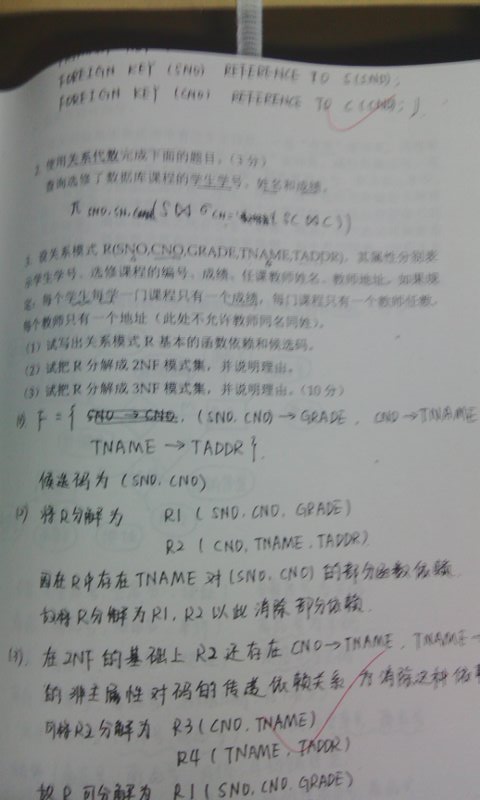 FOREIGN KEY (SNO) REFERENCE TO S(SNO);
FOREIGN KEY (CNO) REFERENCE TO C(CNO);)
2. 使用关系代数完成下面的题目。(3分)
查询选修了数据库课程的学生学号、姓名和成绩。
3. 设关系模式 R(SNO,CNO,GRADE,TNAME,TADDR)，其属性分别表
示学生学号、选修课程的编号、成绩、任课教师姓名、教师地址。如果规
定：每个学生每学一门课程只有一个成绩，每门课程只有一个教师任教，
每个教师只有一个地址（此处不允许教师同名同姓）。
(1) 试写出关系模式 R 基本的函数依赖和候选码。
(2) 试把 R 分解成 2NF 模式集，并说明理由。
(3) 试把 R 分解成 3NF 模式集，并说明理由。(10分)
(1) F = { SNO → CNO, (SNO, CNO) → GRADE, CNO → TNAME
TNAME → TADDR }.
候选码为 (SNO, CNO)
(2) 将R分解为 R1 (SNO, CNO, GRADE)
R2 (CNO, TNAME, TADDR)
因在R中存在TNAME对(SNO, CNO)的部分函数依赖.
故将R分解为R1, R2以此消除部分依赖.
(3) 在2NF的基础上R2还存在CNO→TNAME, TNAME→
的非主属性对码的传递依赖关系 为消除这种依
可将R2分解为 R3 (CNO, TNAME)
R4 (TNAME, TADDR)
故R可分解为 R1 (SNO, CNO, GRADE)